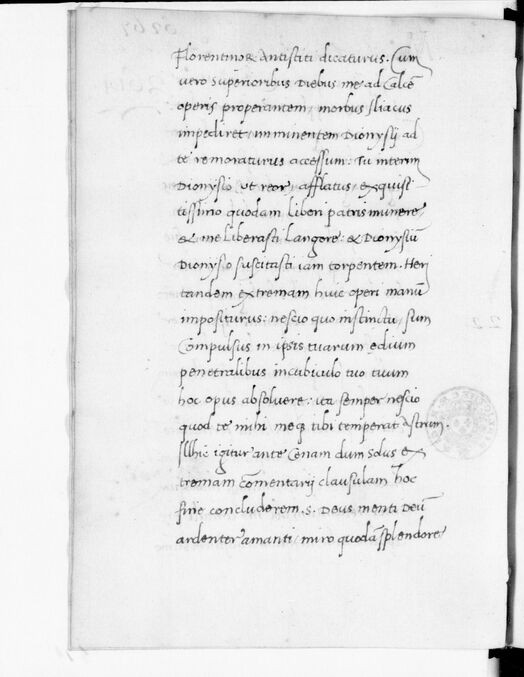 Florentino & Antistiti dicaturus. Cum
vero superioribus Diebus me ad Calcē
operis properantem, morbus Iliacus
impediret, imminentem Dionysij ad
te remoraturus accessum: Tu interim
Dionysio ut reor, afflatus, exquisi-
tissimo quodam liberi patris munere,
& me liberasti langore: & Dionysiū
Dionysio suscitasti iam torpentem. Heri
tandem extremam huic operi manū
impositurus: nescio quo instinctu, sum
Compulsus in ipsis tuarum ędium
penetralibus incubiculo tuo tuum
hoc opus absolvere: ita semper nescio
quod te mihi meq tibi temperat Astrum.
Illhic igitur ante Cenam dum solus ex-
tremam Comentarij clausulam hoc
fine concluderem. s. Deus menti Deū
ardenter amanti, miro quodā splendore